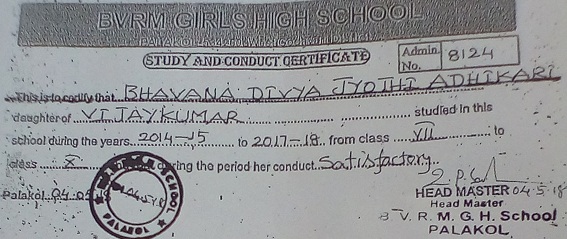 BVRM GIRLS HIGH SCHOOL
STUDY AND CONDUCT CERTIFICATE
Admin. No. 8124
This is to certify that BHAVANA DIVYA JYOTHI ADHIKARI
daughter of VIJAYKUMAR studied in this
school during the years 2014-15 to 2017-18. from class VII to
class X during the period her conduct Satisfactory
Palakol
HEAD MASTER 04-5-18
Head Master
B V. R. M. G. H. School
PALAKOL
SCHOOL
PALAKOL